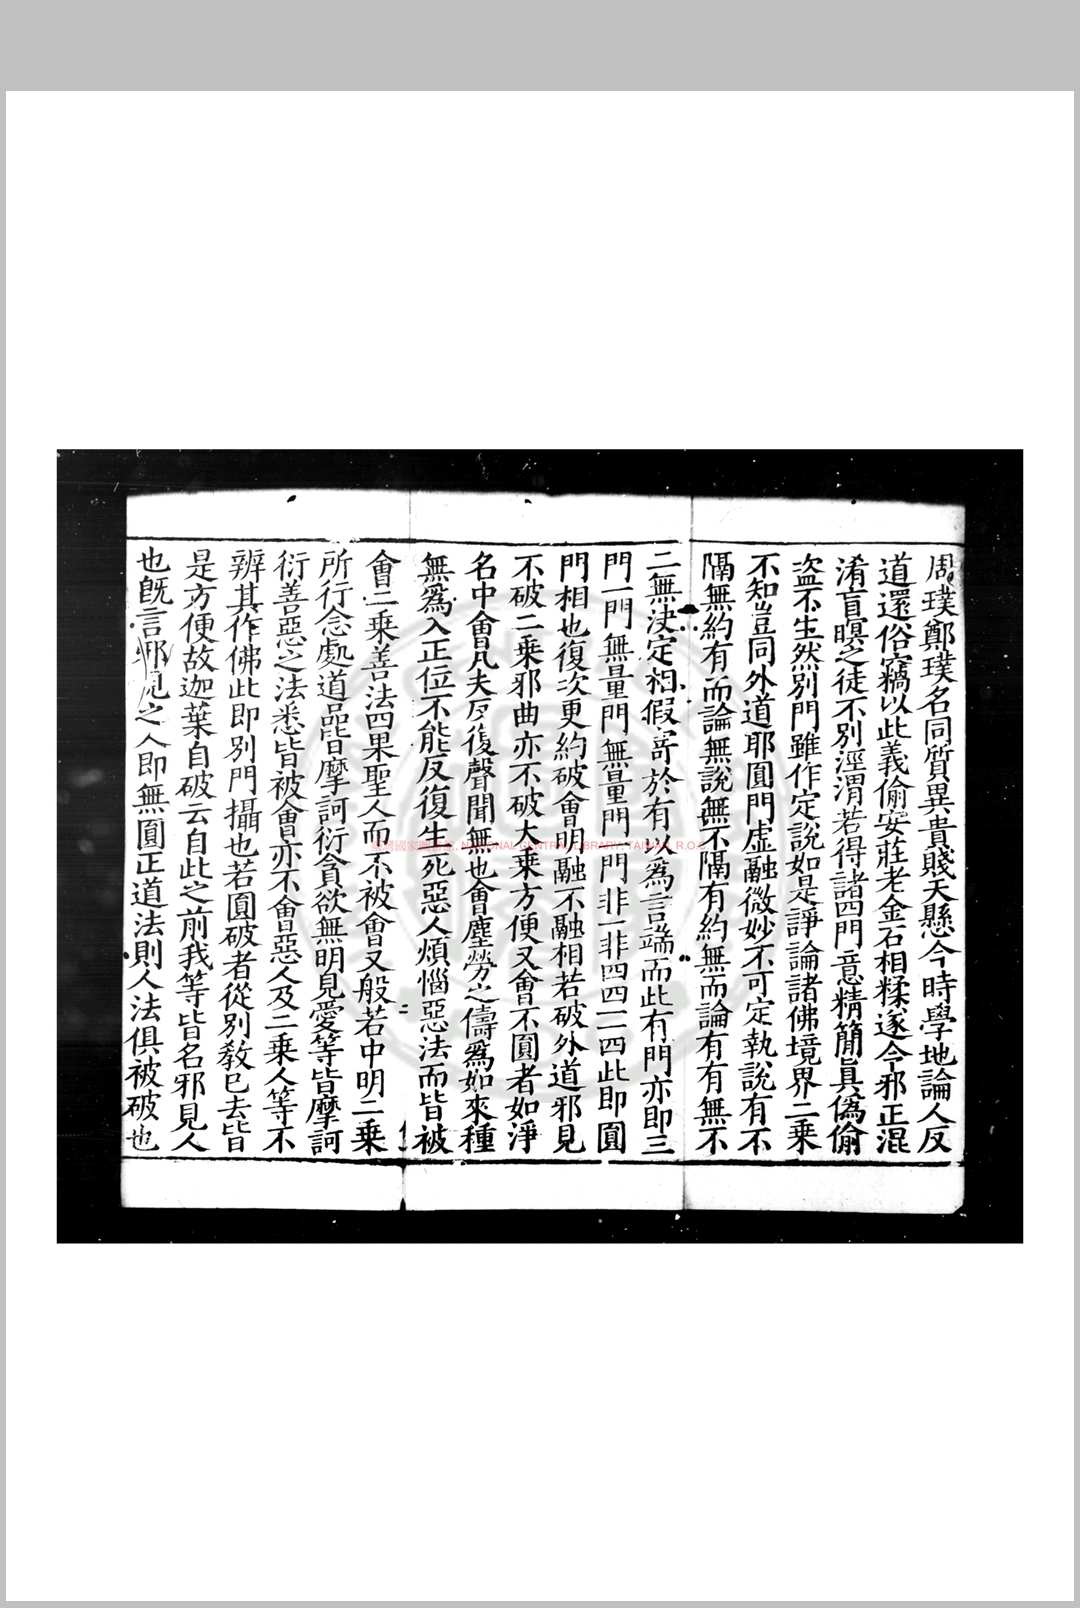 周璞鄭璞名同質異貴賤天懸今時學地論人反
道還俗竊以此義偷安莊老金石相糅遂令邪正混
淆盲瞑之徒不別涇渭若得諸四門意精簡真偽偷
盜不生然別門雖作定說如是諍論諸佛境界二乘
不知豈同外道耶圓門虛融微妙不可定執說有不
隔無約有而論無說無不隔有約無而論有有無不
二無決定相假寄於有以為言端而此有門亦即三
門一門無量門無量門一門非一非四四一一四此即圓
門相也復次更約破會明融不融相若破外道邪見
不破二乘邪曲亦不破大乘方便又會不圓者如淨
名中會凡夫反復聲聞無也會塵勞之儔為如來種
無為入正位不能反復生死惡人煩惱惡法而皆被
會二乘善法四果聖人而不被會又般若中明二乘
所行念處道品皆摩訶衍貪欲無明見愛等皆摩訶
衍善惡之法悉皆被會亦不會惡人及二乘人等不
辨其作佛此即別門攝也若圓破者從別教已去皆
是方便故迦葉自破云自此之前我等皆名邪見人
也既言邪見之人即無圓正道法則人法俱被破也
臺灣國家圖書館, NATIONAL CENTRAL LIBRARY, TAIWAN, R.O.C